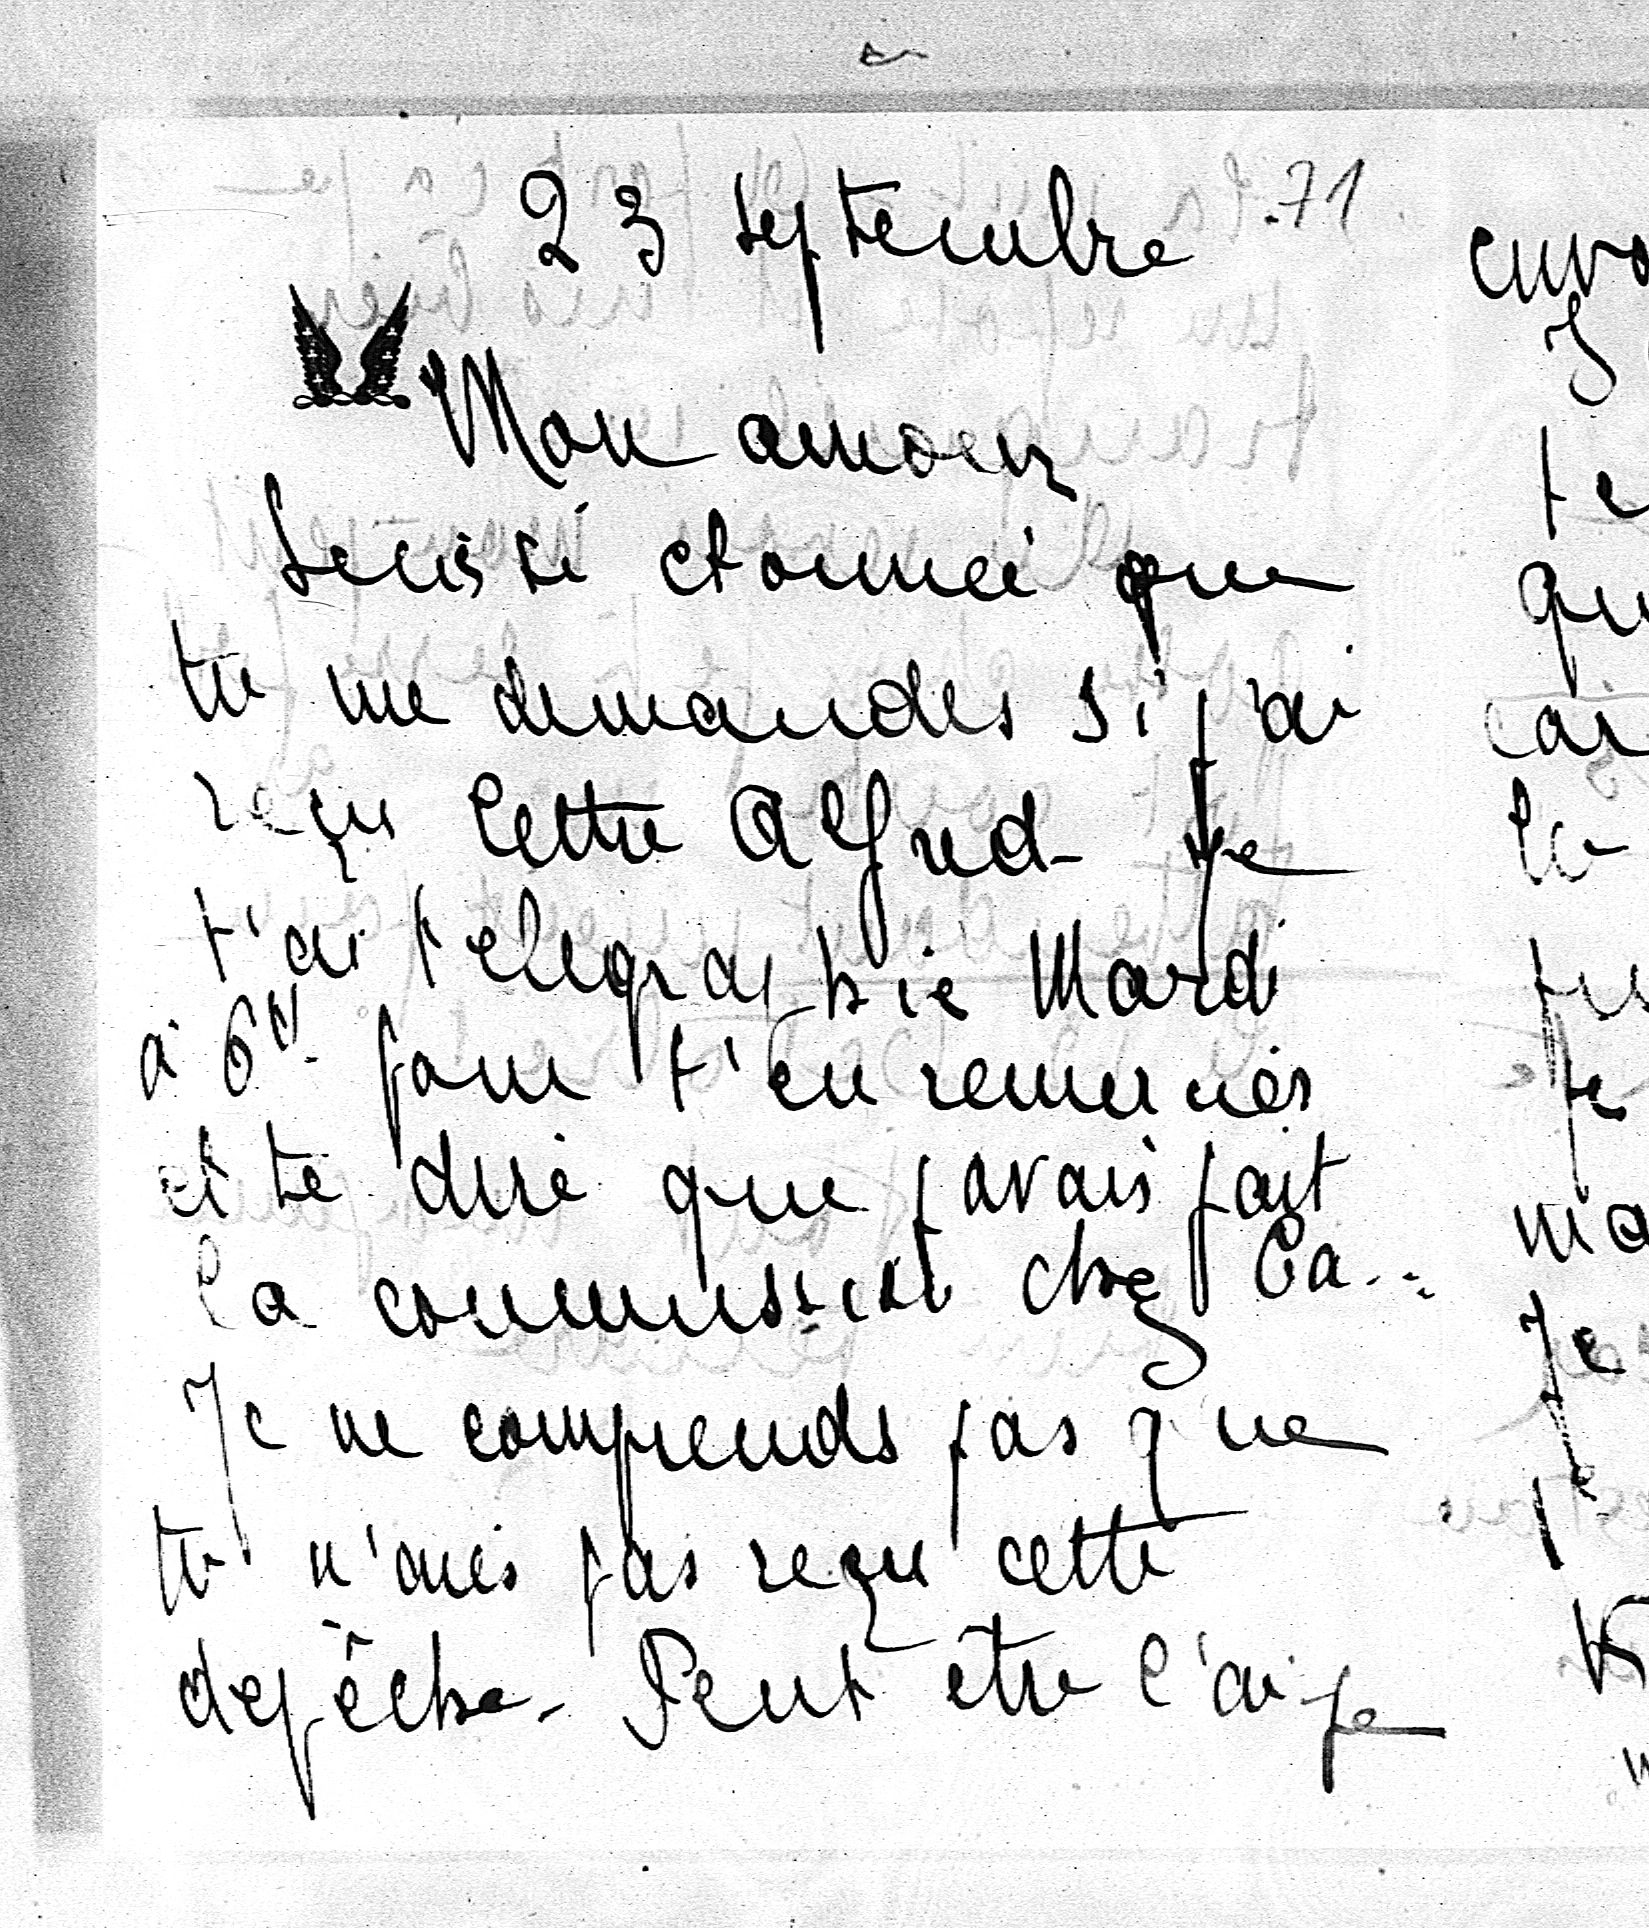 23 septembre .71
Mon amour
Suis si etonnée que
tu me demandes si j'ai
reçu lettre Alfred - Je
t'ai telegraphie Mardi
à 6h pour t'en remercier
et te dire que j'avais fait
la commission chez Ca...
Je ne comprends pas que
tu n'aies pas reçu cette
depêche - Peut être l'ai-je